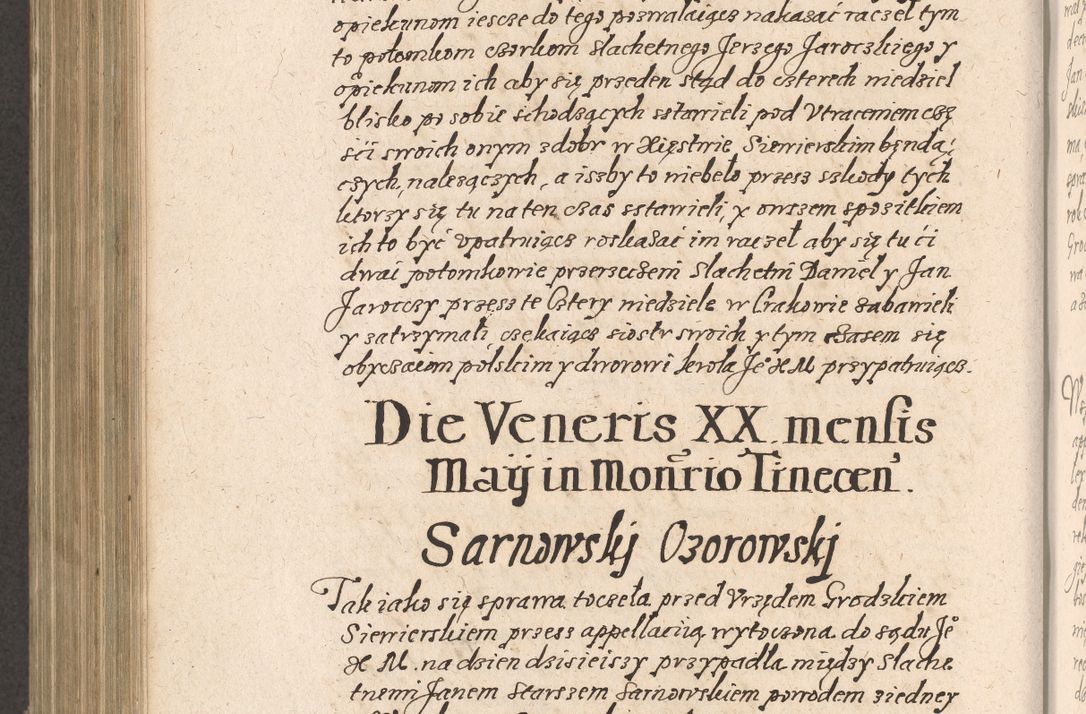 opiekunom iescze do tego pozwalaiącz nakazać raczeł tym
to potomkom czorkom slachetnego Jerzego Jaroczkiego y
opiekunom ich aby się przeden stąd do czterech niedziel
blisko po sobie ichodzących sstawieli pod Vtraceniem czę
ści swoich onym z dobr w Xięstwie Siewierskim bęndą,
czych, należączych, a iszby to niebeło przesz szkody tych
ktorzy się tu na ten czas sstawieli, y owszem sposzitkiem
ich to być vpatruiącz roskazać im raczeł aby się tu ci
dwai potomkowie przerzeczeni Slachetni Daniel y Jan
Jaroczy przesz te Cztery niedziele w Crakowie zabawieli
y zatrzymali czekaiącz siostr swoich y tym czasem się
obyczaiom polskim y dworowi krola Je° K M przypatruiącz.
Die Veneris XX. mensis
Maij in Monrio Tinecen.
Sarnowskj Ozorowskj
Tak iako się sprawa toczeła przed Vrzędem Grodzkiem
Siewierskiem przesz appellaciią wytoczona do sądu Je°
K M. na dzien dzisieiszy przypadła między Slache
tnemi Janem Starszem Sarnowskiem powodem ziedney